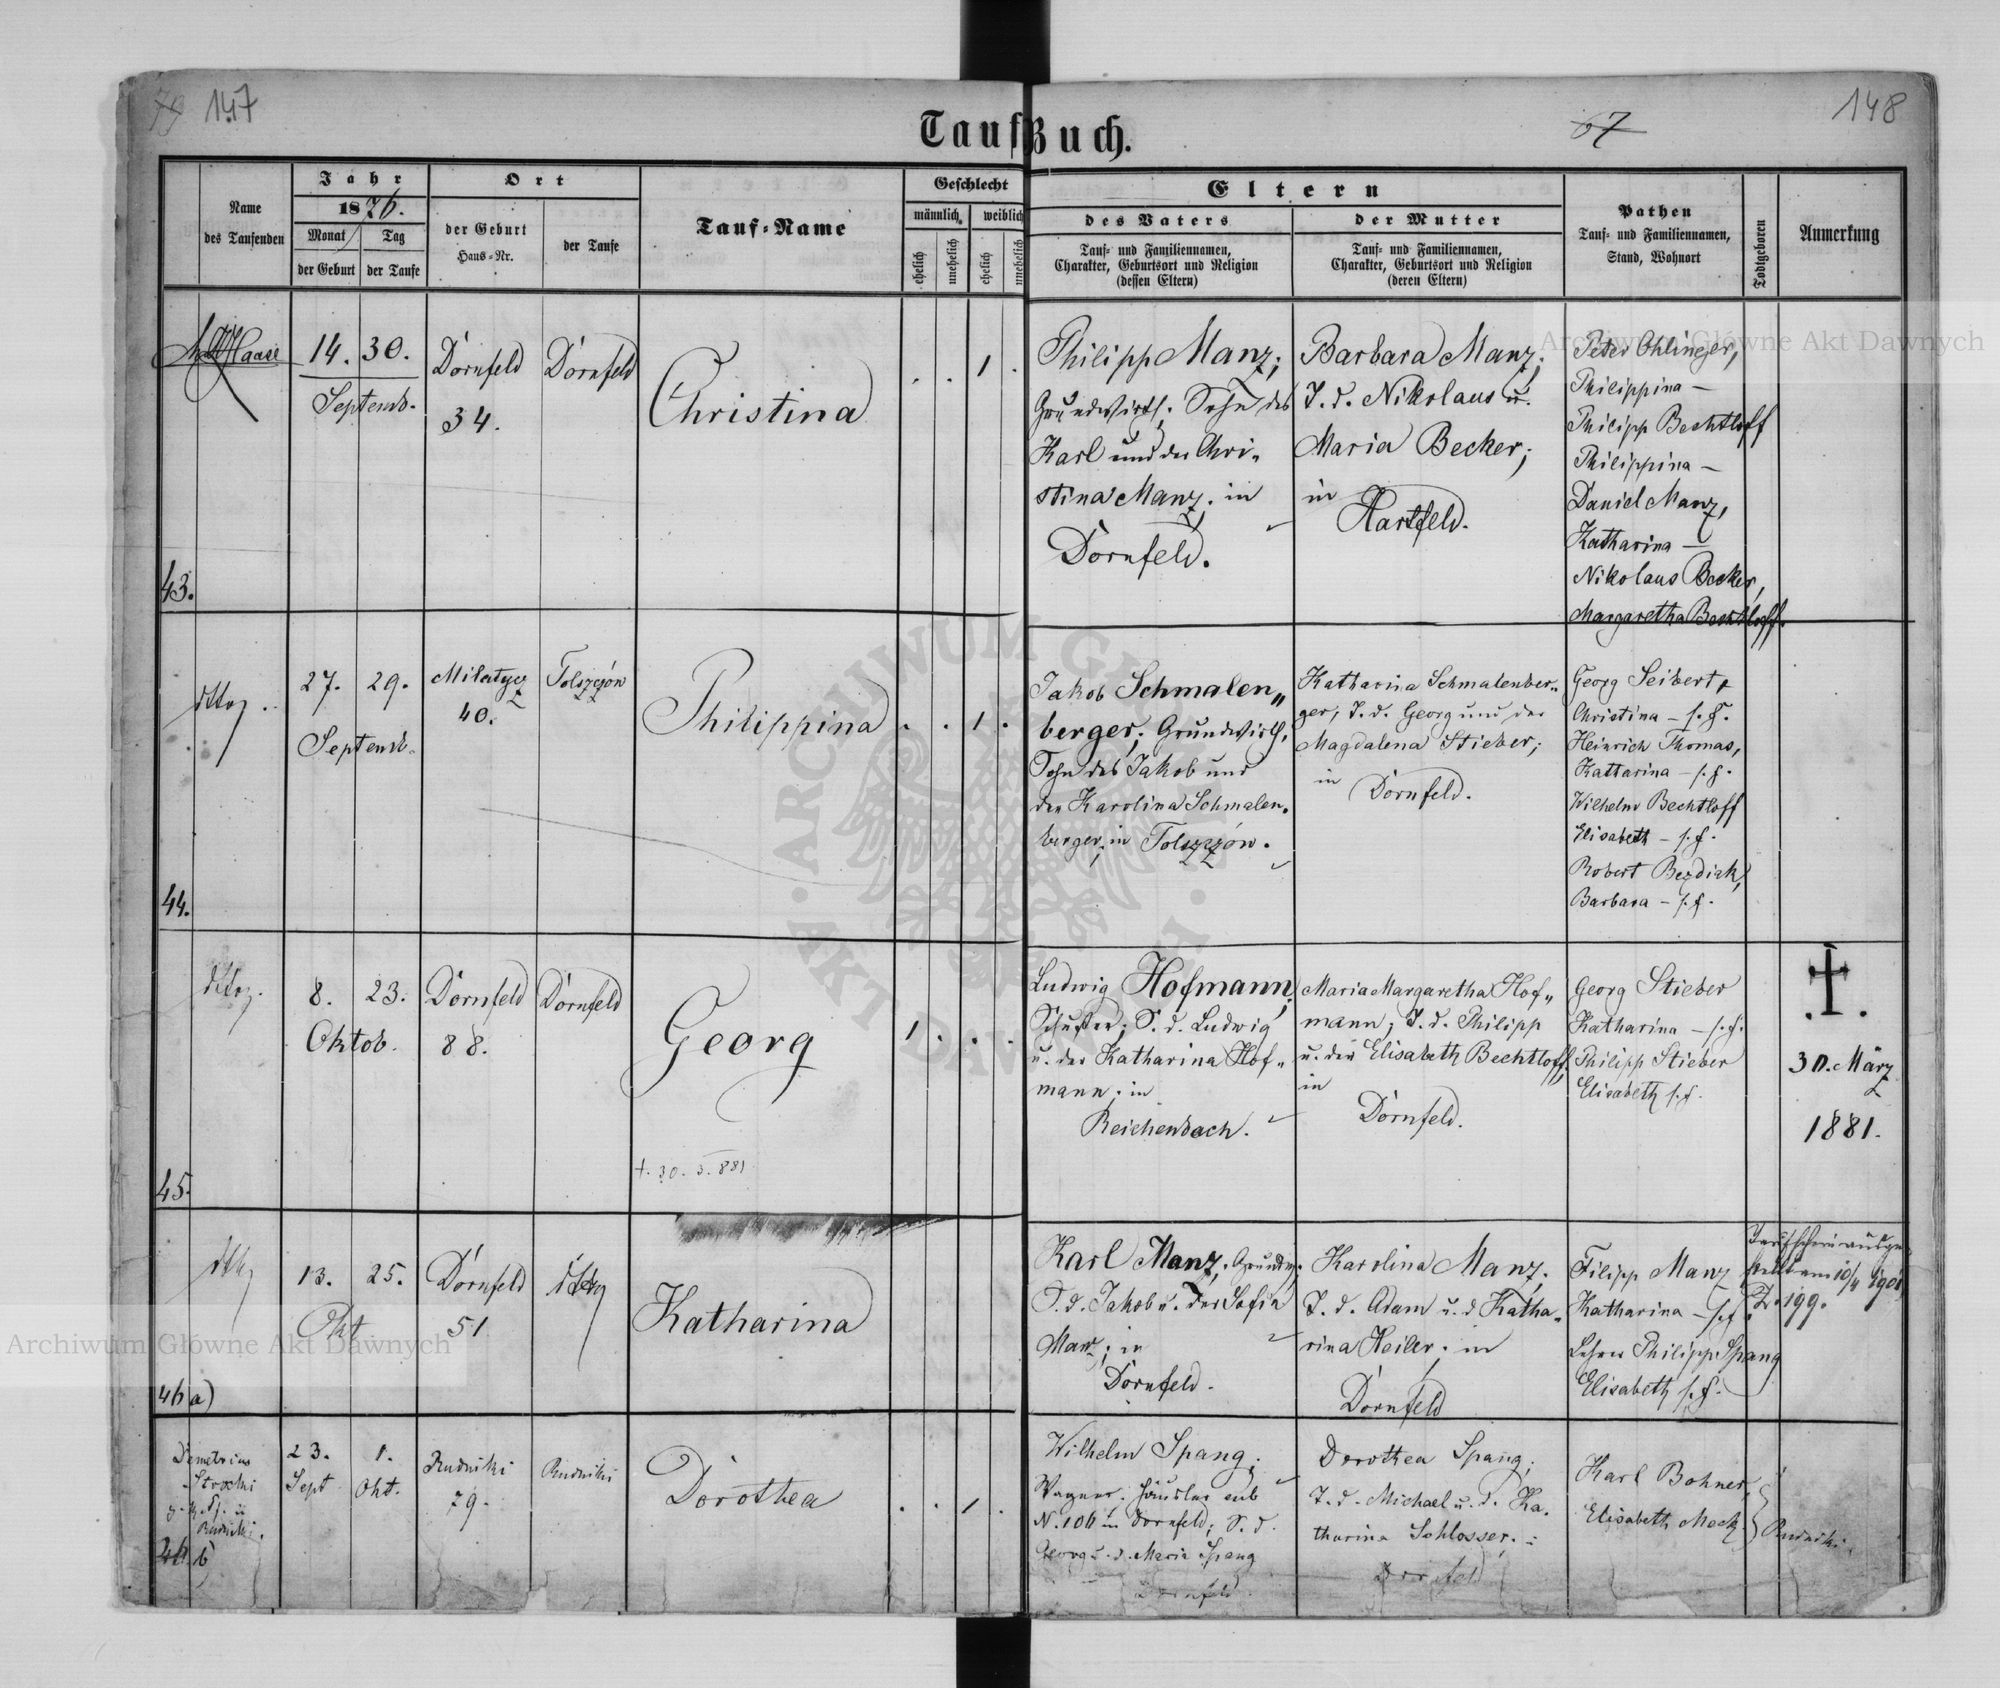 79 147
Tauf Buch.
67
148
Name
des Taufenden
Jahr
1876.
Monat
Tag
der Geburt
der Taufe
Ort
der Geburt
Haus-Nr.
der Taufe
Tauf-Name
Geschlecht
männlich
weiblich
ehelich
unehelich
ehelich
unehelich
Eltern
des Vaters
Tauf- und Familiennamen,
Charakter, Geburtsort und Religion
(dessen Eltern)
der Mutter
Tauf- und Familiennamen,
Charakter, Geburtsort und Religion
(deren Eltern)
Pathen
Tauf- und Familiennamen,
Stand, Wohnort
Todtgeboren
Anmerkung
43.
Haase
14. 30.
Septemb.
Dornfeld
34.
Dornfeld
Christina
. . 1 .
Philipp Manz;
Grundwirth. Sohn des
Karl und der Chri-
stina Manz, in
Dornfeld.
Barbara Manz;
T. d. Nikolaus u.
Maria Becker;
in
Hartfeld.
Peter Ohlinger,
Philippina —
Philipp Bechtloff
Philippina —
Daniel Manz,
Katharina —
Nikolaus Becker,
Margaretha Bechtloff.
44.
dtto
27. 29.
Septemb.
Milatycz
40.
Tolszczów
Philippina
. . 1 .
Jakob Schmalen„
berger; Grundwirth,
Sohn des Jakob und
der Karolina Schmalen„
berger; in Tolszczów.
Katharina Schmalenber„
ger, T. d. Georg und der
Magdalena Stieber;
in
Dornfeld.
Georg Seibert,
Christina — s. F.
Heinrich Thomas,
Katharina — s. F.
Wilhelm Bechtloff
Elisabeth — s. F.
Robert Bezdiak,
Barbara — s. F.
45.
dtto
8. 23.
Oktob.
Dornfeld
88.
Dornfeld
Georg
+. 30. 3. 881
1 . . .
Ludwig Hofmann;
Schuster; S. d. Ludwig
u. der Katharina Hof„
mann; in
Reichenbach.
Maria Margaretha Hof„
mann; T. d. Philipp
u. der Elisabeth Bechtloff
in
Dornfeld.
Georg Stieber
Katharina — s. F.
Philipp Stieber
Elisabeth s. F.
30. März
1881.
46 a)
dtto
13. 25.
Okt
Dornfeld
51
dtto
Katharina
Karl Manz,
S. d. Jakob u. der Sofia
Manz; in
Dornfeld.
Karolina Manz;
T. d. Adam u. d Katha„
rina Heiler; in
Dornfeld
Filipp Manz
Katharina — s. F
Lehrer Philipp Spang
Elisabeth s. F.
Taufschein ausge-
stellt am 10/4 1901
Z. 199.
46 b
Demetrius
Strocki
Rudniki.
23.
Sept
1.
Okt.
Rudniki
79.
Rudniki
Dorothea
. . 1 .
Wilhelm Spang;
Wagner. Häusler sub
N. 106 in Dornfeld; S. d.
Georg u. d. Maria Spang
Dornfeld.
Dorothea Spang;
T. d. Michael u. d. Ka-
tharina Schlosser.
Dornfeld
Karl Bohner,
Elisabeth Mock.
Rudniki.
Archiwum Główne Akt Dawnych
Archiwum Główne Akt Dawnych
ARCHIWUM GŁÓWNE AKT DAWNYCH